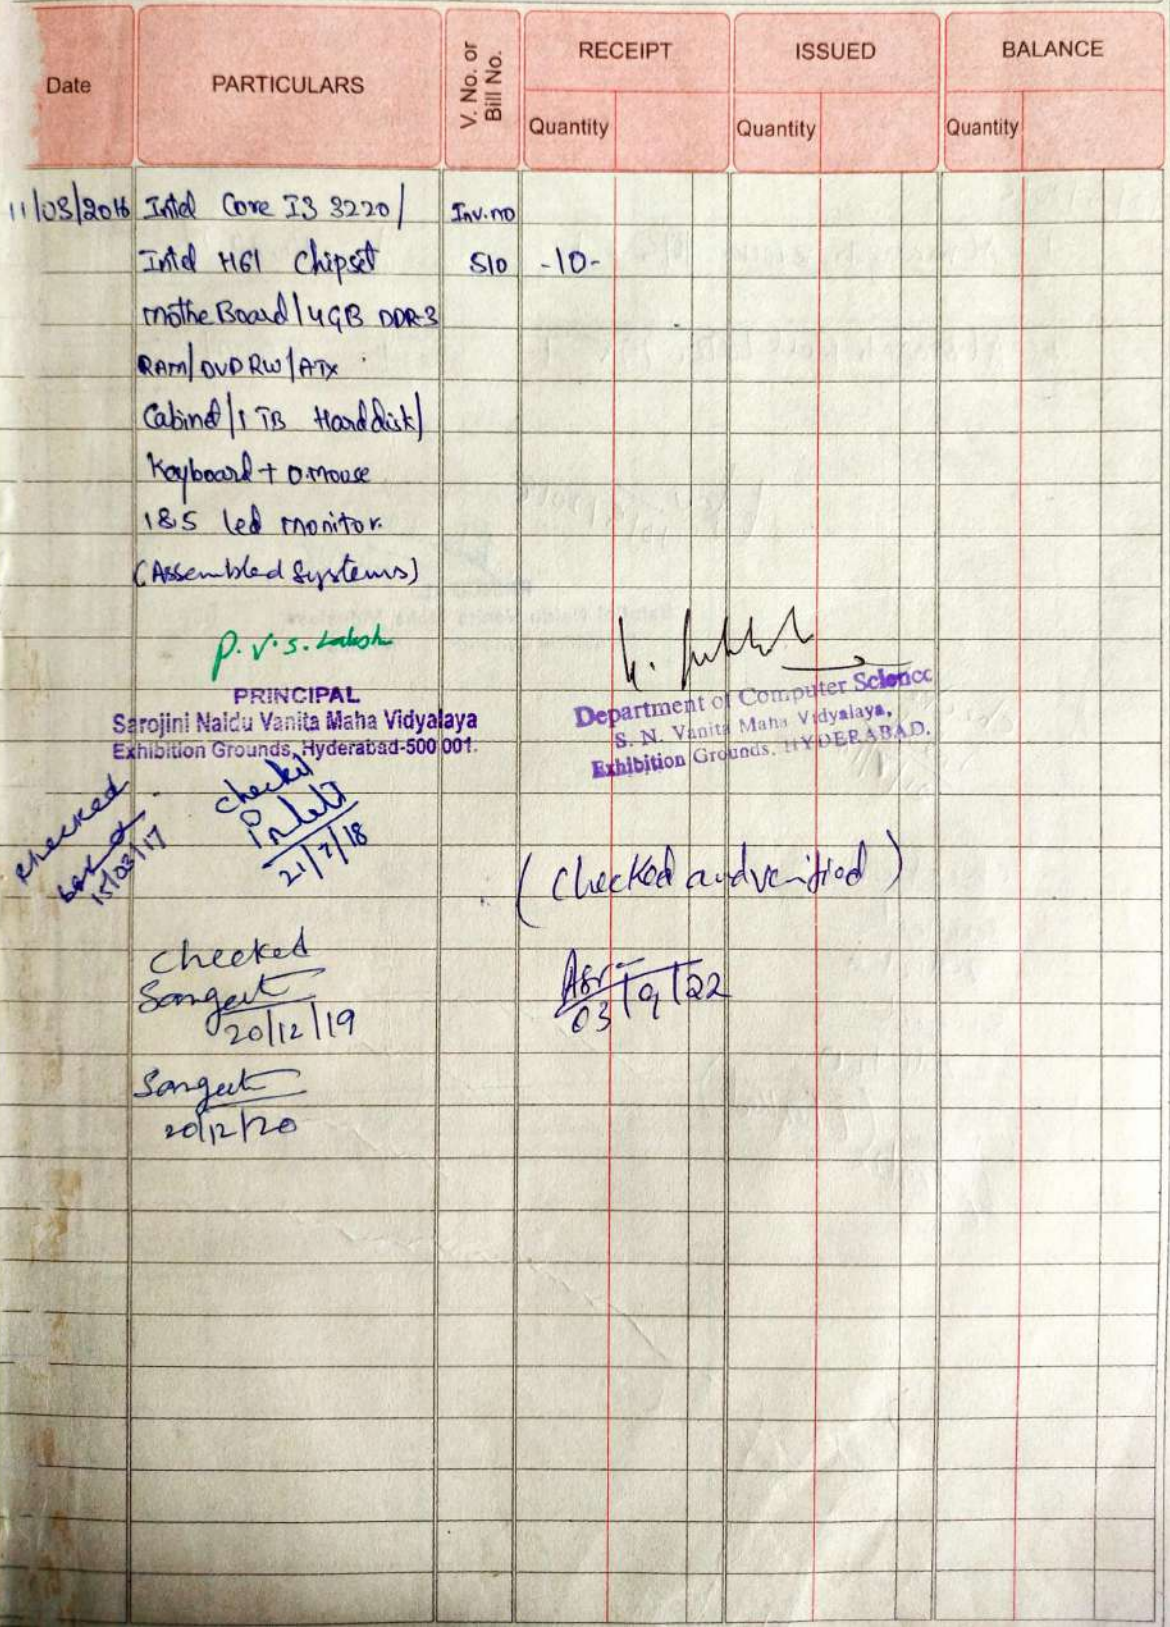 Date PARTICULARS V. No. or Bill No. RECEIPT ISSUED BALANCE
Quantity Quantity Quantity
11/03/2016 Intel Core I3 3220/ Inv.no
Intel H61 Chipset 510 -10-
mothe Board/4GB DDR-3
RAM/DVD RW/ATX
Cabinet/1 TB Hard disk/
Keyboard + O.mouse
18.5 led monitor.
(Assembled Systems)
P.V.S.
PRINCIPAL
Sarojini Naidu Vanita Maha Vidyalaya
Exhibition Grounds, Hyderabad-500 001.
Department of Computer Science
S. N. Vanita Maha Vidyalaya,
Exhibition Grounds, HYDERABAD.
checked
15/03/17
checked
21/7/18
(checked and verified)
checked
Sangeet
20/12/19
03/9/22
Sangeet
20/12/20